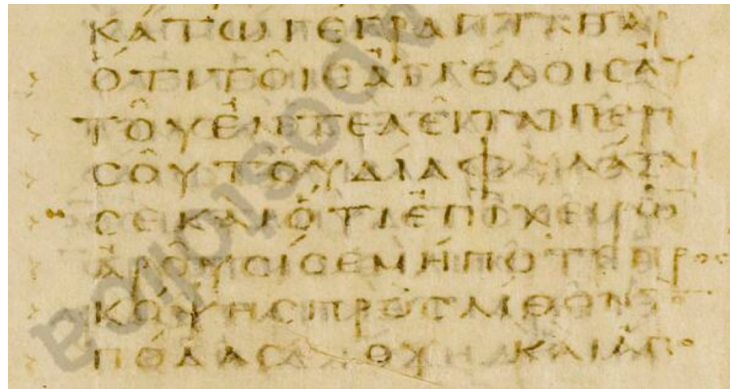 ΚΑΤΩΓΕΓΡΑΠΤΑΙΓΑΡ
ΟΤΙΤΟΙϹΑΓΓΕΛΟΙϹΑΥ
ΤΟΥΕΝΤΕΛΕΙΤΑΙΠΕΡΙ
ϹΟΥΤΟΥΔΙΑΦΥΛΑΞΑΙ
ϹΕΚΑΙΟΤΙΕΠΙΧΕΙΡΩ
ΑΡΟΥϹΙϹΕΜΗΠΟΤΕΠΡΟϹ
ΚΟΨΗϹΠΡΟϹΛΙΘΟΝ
ΠΟΔΑ ΚΑΙΑΠΟ
apostolica